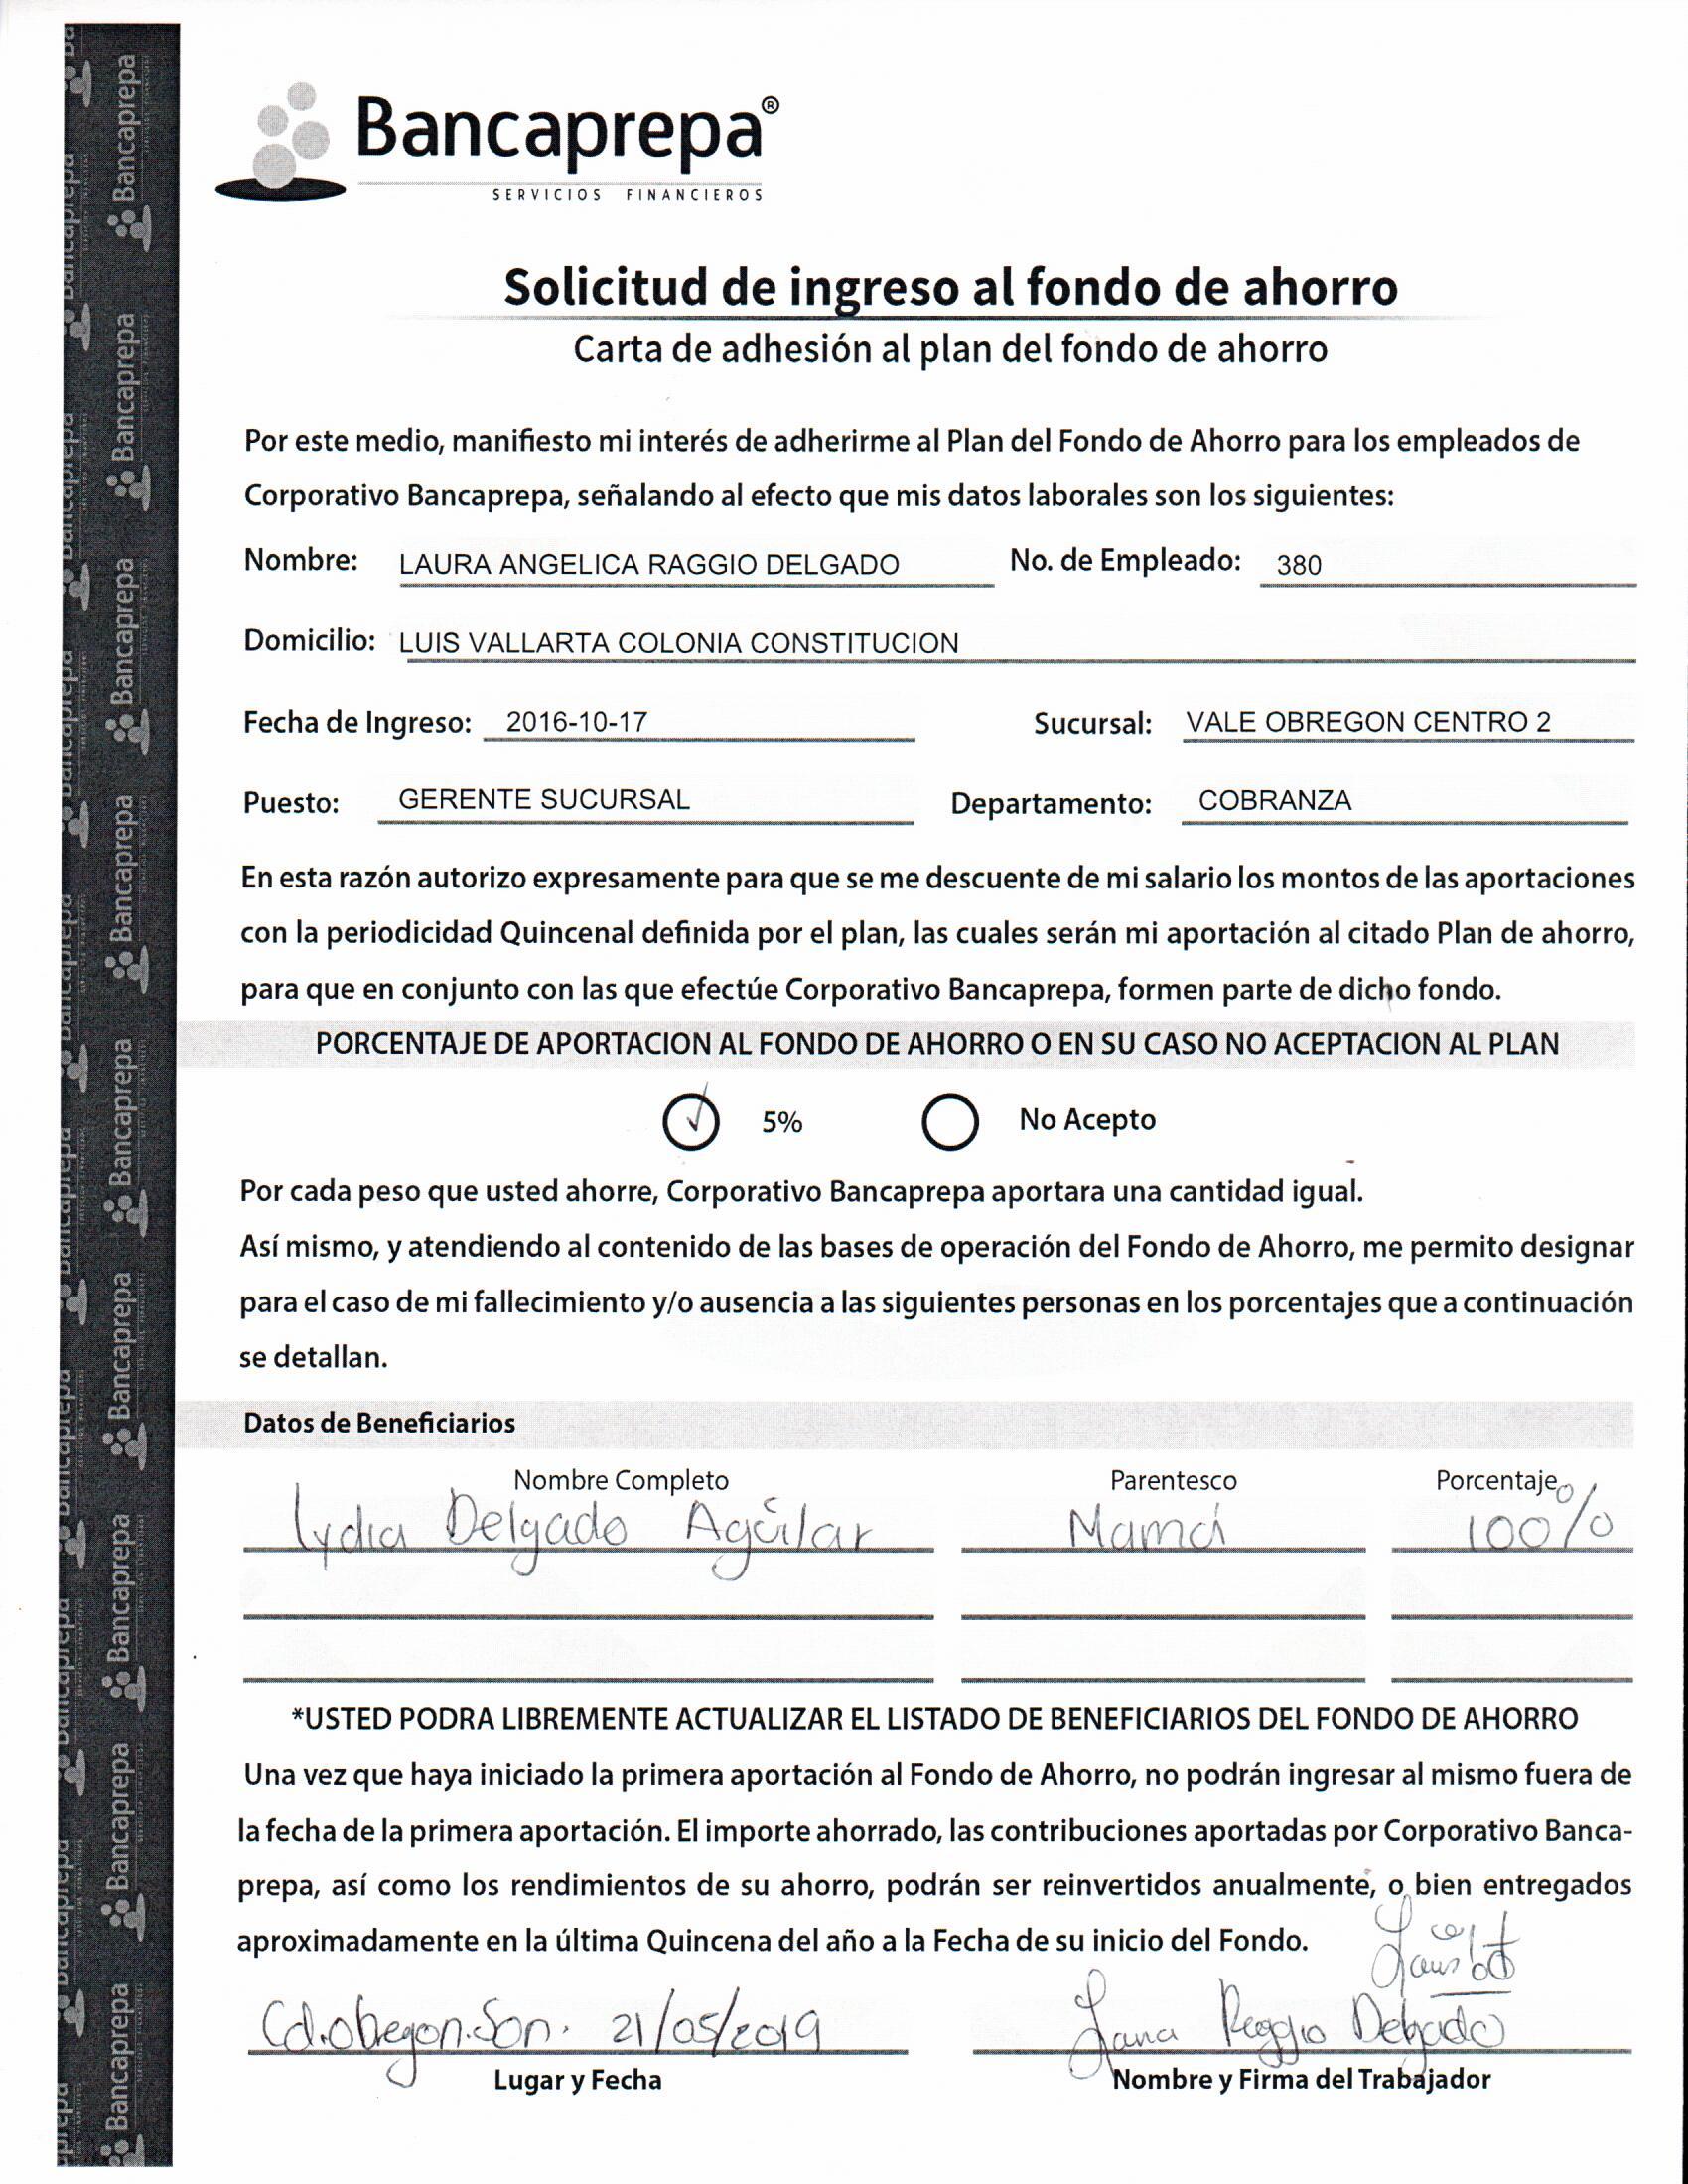 Bancaprepa®
SERVICIOS FINANCIEROS
Solicitud de ingreso al fondo de ahorro
Carta de adhesión al plan del fondo de ahorro
Por este medio, manifiesto mi interés de adherirme al Plan del Fondo de Ahorro para los empleados de
Corporativo Bancaprepa, señalando al efecto que mis datos laborales son los siguientes:
Nombre: LAURA ANGELICA RAGGIO DELGADO No. de Empleado: 380
Domicilio: LUIS VALLARTA COLONIA CONSTITUCION
Fecha de Ingreso: 2016-10-17 Sucursal: VALE OBREGON CENTRO 2
Puesto: GERENTE SUCURSAL Departamento: COBRANZA
En esta razón autorizo expresamente para que se me descuente de mi salario los montos de las aportaciones
con la periodicidad Quincenal definida por el plan, las cuales serán mi aportación al citado Plan de ahorro,
para que en conjunto con las que efectúe Corporativo Bancaprepa, formen parte de dicho fondo.
PORCENTAJE DE APORTACION AL FONDO DE AHORRO O EN SU CASO NO ACEPTACION AL PLAN
5% No Acepto
Por cada peso que usted ahorre, Corporativo Bancaprepa aportara una cantidad igual.
Así mismo, y atendiendo al contenido de las bases de operación del Fondo de Ahorro, me permito designar
para el caso de mi fallecimiento y/o ausencia a las siguientes personas en los porcentajes que a continuación
se detallan.
Datos de Beneficiarios
Nombre Completo Parentesco Porcentaje
Lydia Delgado Agüilar Mamá 100%
*USTED PODRA LIBREMENTE ACTUALIZAR EL LISTADO DE BENEFICIARIOS DEL FONDO DE AHORRO
Una vez que haya iniciado la primera aportación al Fondo de Ahorro, no podrán ingresar al mismo fuera de
la fecha de la primera aportación. El importe ahorrado, las contribuciones aportadas por Corporativo Banca-
prepa, así como los rendimientos de su ahorro, podrán ser reinvertidos anualmente, o bien entregados
aproximadamente en la última Quincena del año a la Fecha de su inicio del Fondo.
Cd.obregon.Son. 21/05/2019 Laura Raggio Delgado
Lugar y Fecha Nombre y Firma del Trabajador